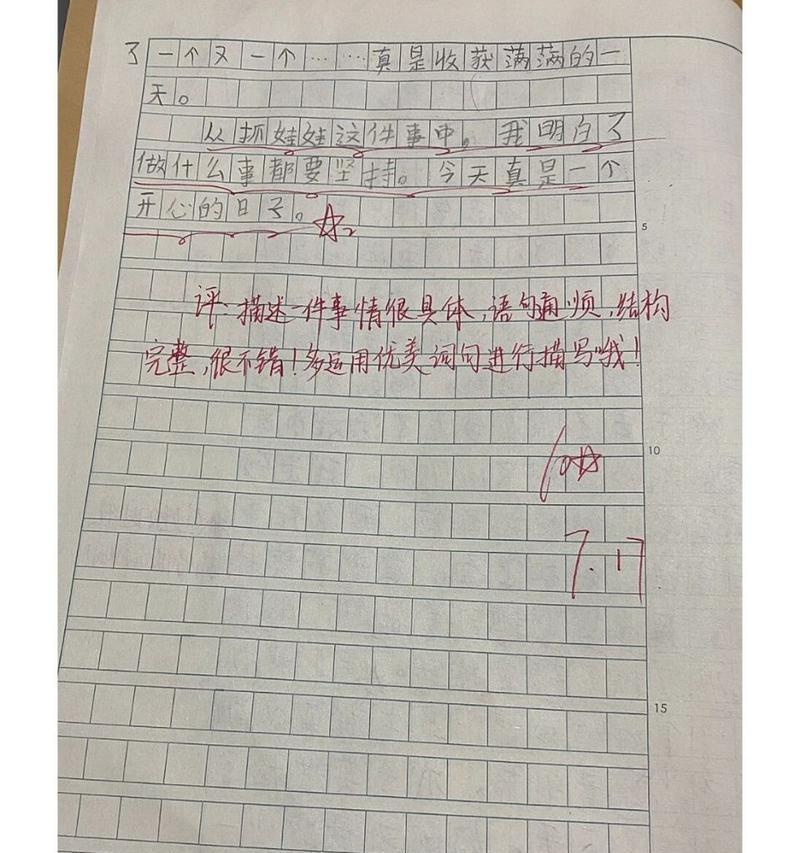 了一个又一个……真是收获满满的一
天。
从抓娃娃这件事中，我明白了
做什么事都要坚持。今天真是一个
开心的日子。☆2
5
评：描述一件事情很具体，语句通顺，结构
完整，很不错！多运用优美词句进行描写哦！
10
10☆
7.17
15